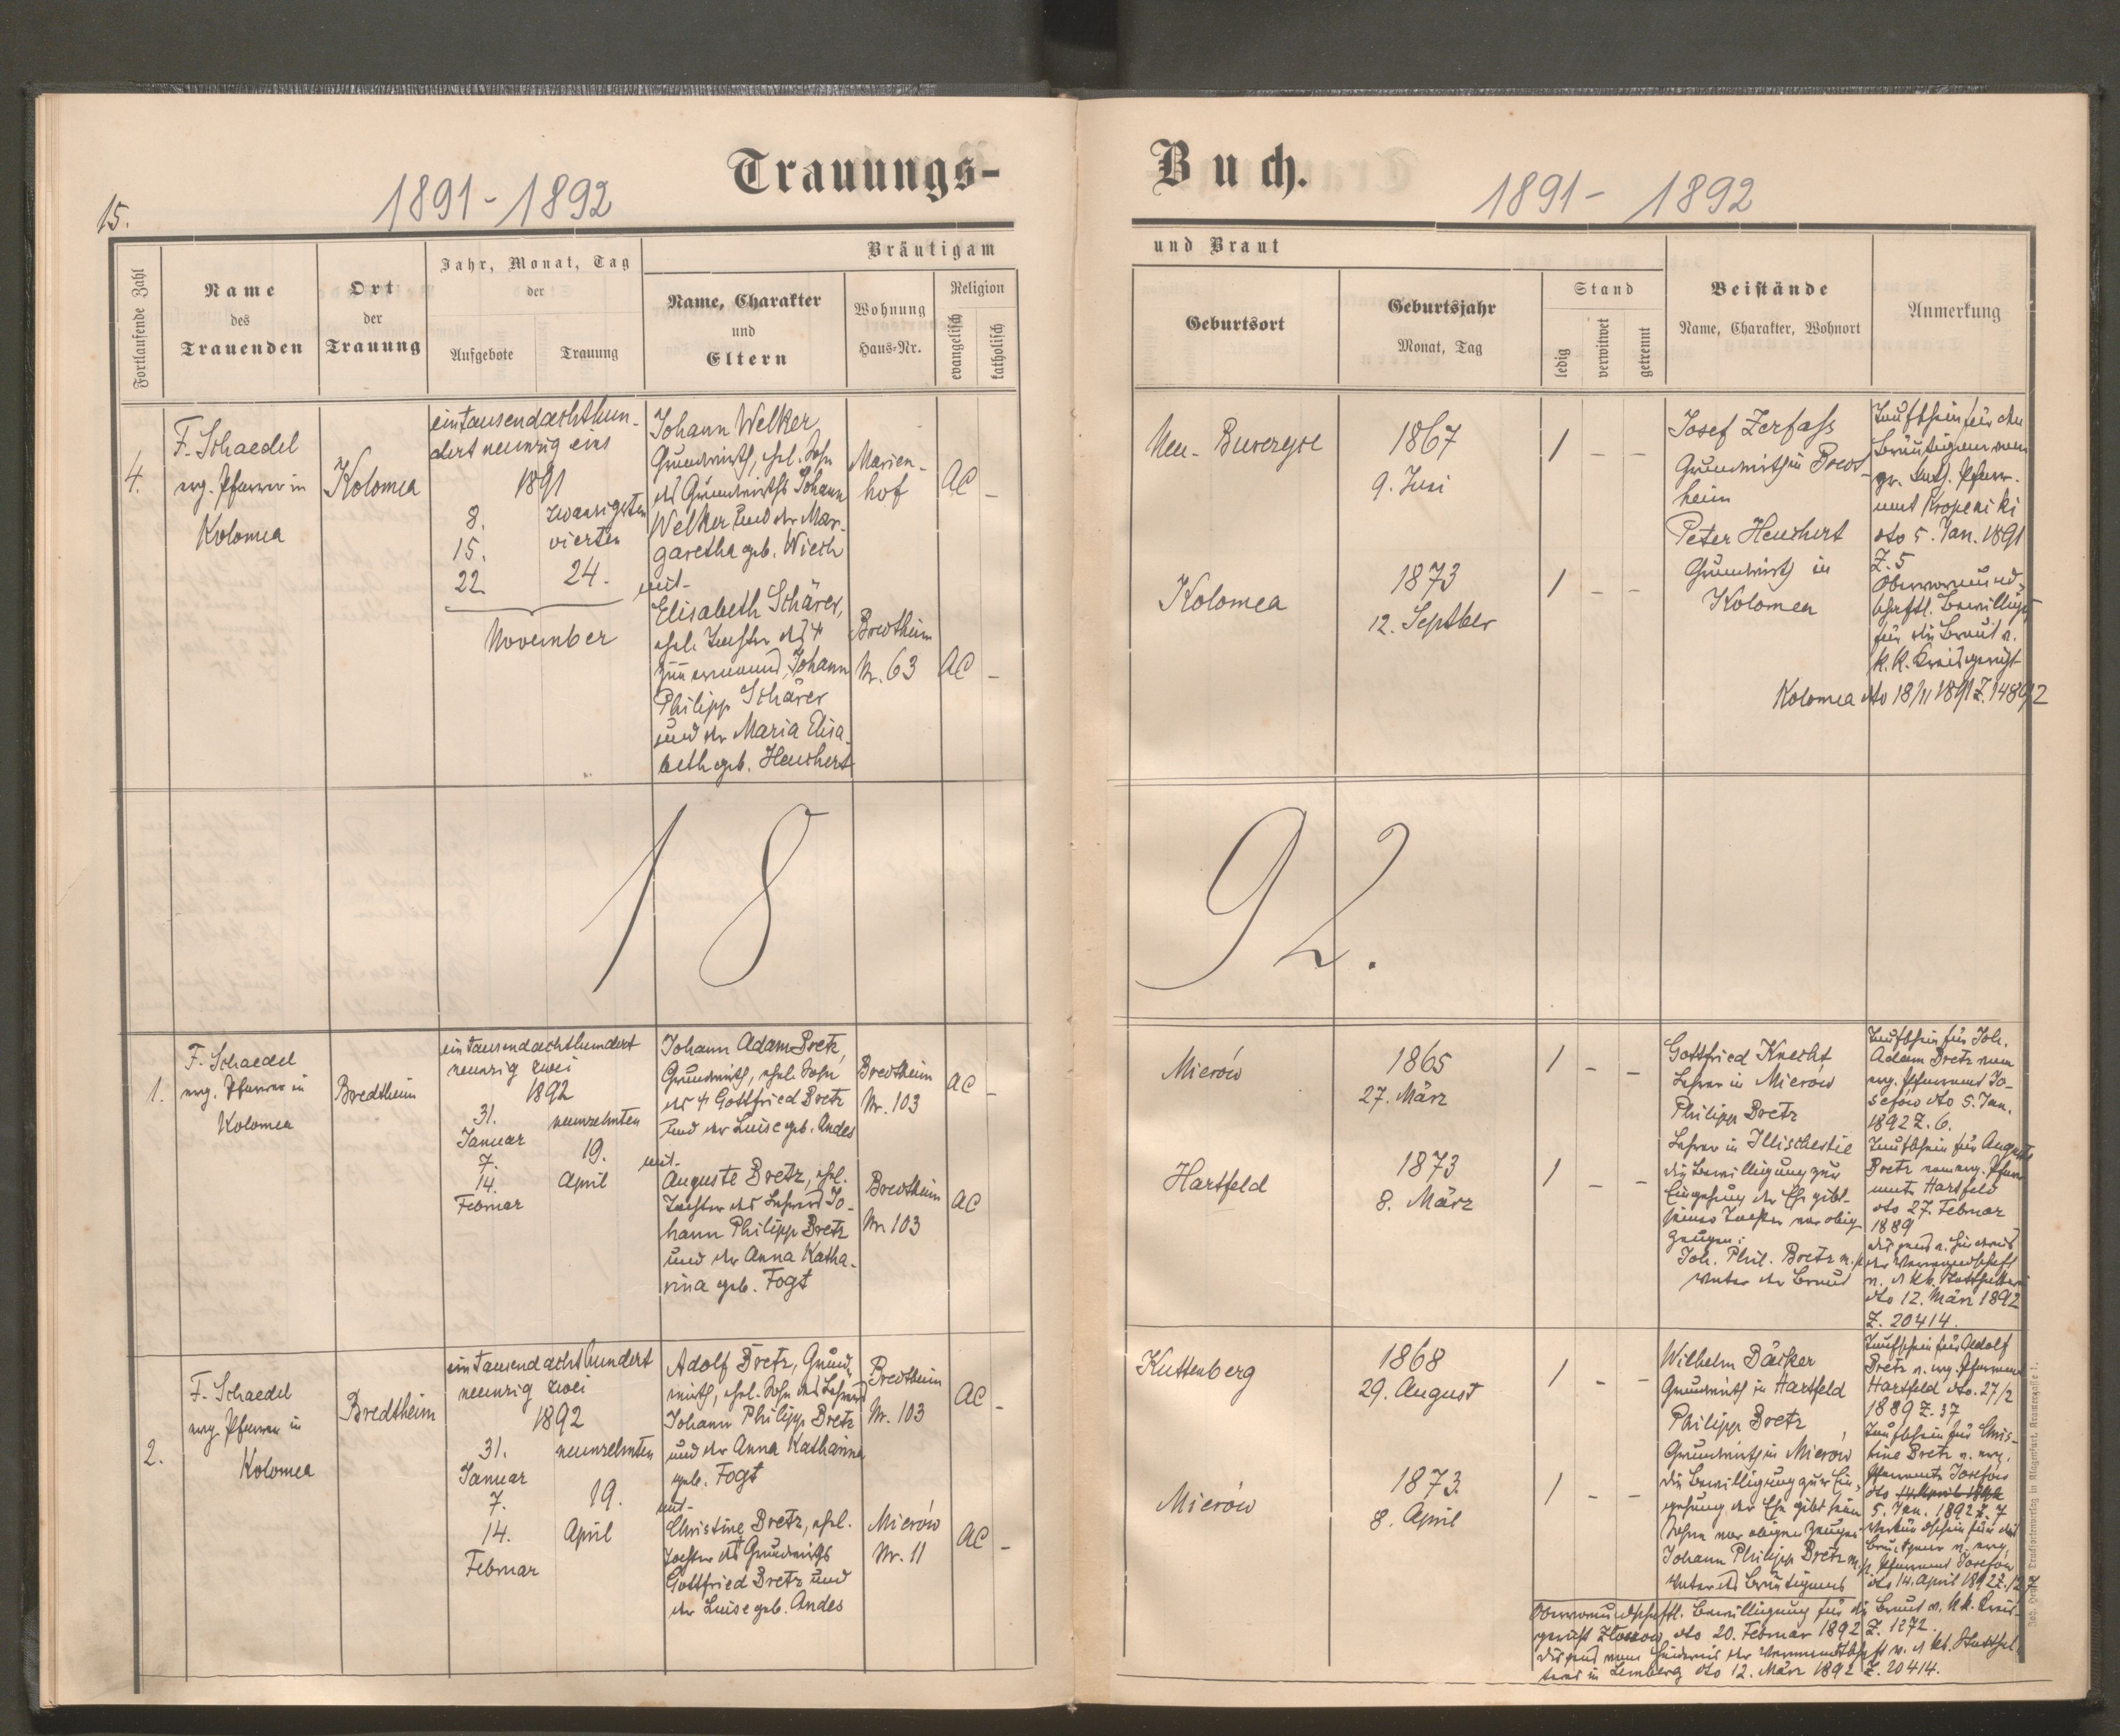 15.
1891-1892
Trauungs-
Fortlaufende Zahl
Name
des
Trauenden
Ort
der
Trauung
Jahr, Monat, Tag
der
Aufgebote
Trauung
Bräutigam
Name, Charakter
und
Eltern
Wohnung
Haus-Nr.
Religion
evangelisch
katholisch
4.
F. Schaedel
evg. Pfarrer in
Kolomea
Kolomea
eintausendachthun-
dert neunzig eins
1891
8.
15.
22
zwanzigsten
vierten
24.
November
Johann Welker,
Grundwirth, ehel. Sohn
des Grundwirths Johann
Welker und der Mar-
garetha geb. Wiech
mit
Elisabeth Schärer,
ehel. Tochter des †
Zimmermanns Johann
Philipp Schärer
und der Maria Elisa-
beth geb. Heuchert
Marien-
hof
AC -
Bredtheim
Nr. 63
AC -
18
1.
F. Schaedel
evg. Pfarrer in
Kolomea
Bredtheim
eintausendachthundert
neunzig zwei
1892
31.
Januar
7.
14.
Februar
neunzehnten
19.
April
Johann Adam Bretz,
Grundwirth, ehel. Sohn
des † Gottfried Bretz
und der Luise geb. Andes
mit
Auguste Bretz, ehel.
Tochter des Lehrers Jo-
hann Philipp Bretz
und der Anna Katha-
rina geb. Fogt
Bredtheim
Nr. 103
AC -
Bredtheim
Nr. 103
AC
2.
F. Schaedel
evg. Pfarrer in
Kolomea
Bredtheim
eintausendachthundert
neunzig zwei
1892
31.
Januar
7.
14.
Februar
neunzehnten
19.
April
Adolf Bretz, Grund-
wirth, ehel. Sohn des Lehrers
Johann Philipp Bretz
und der Anna Katharina
geb. Fogt
mit
Christine Bretz, ehel.
Tochter des Grundwirths
Gottfried Bretz und
der Luise geb. Andes
Bredtheim
Nr. 103
AC -
Mierów
Nr. 11
AC -
Buch.
1891- 1892
und Braut
Geburtsort
Geburtsjahr
Monat, Tag
Stand
ledig
verwitwet
getrennt
Beistände
Name, Charakter, Wohnort
Anmerkung
Neu-
1867
9. Juni
1 - -
Kolomea
1873
12. Septber
1 - -
Josef Zerfass
Grundwirth in Bred-
heim
Peter Heuchert
Grundwirth in
Kolomea
Taufschein für den
Bräutigam vom
Pfarr-
amt
dto 5. Jan. 1891
Z. 5
Obervormund-
schaftl. Bewilligg
für die Braut v.
k. k. Kreisgericht
Kolomea dto 18/11 1891 Z. 14892
92.
Mierów
1865
27. März
1 - -
Hartfeld
1873
8. März
1 - -
Gottfried Knecht
Lehrer in Mierów
Philipp Bretz
Lehrer in Illischestie
die Bewilligung zur
Eingehung der Ehe gibt
seiner Tochter vor obig.
Zeugen:
Joh. Phil. Bretz m. p.
Vater der Braut
Taufschein für Joh.
Adam Bretz vom
evg. Pfarramt Jo-
sefów dto 5. Jan.
1892 Z. 6.
Taufschein für Auguste
Bretz vom evg. Pfarr-
amte Hartfeld
dto 27. Februar
1889
der Verwandtschaft
dto 12. März 1892
Z. 20414.
Kuttenberg
1868
29. August
1 - -
Mierów
1873.
8. April
1 - -
Wilhelm Däcker
Grundwirth in Hartfeld
Philipp Bretz
Grundwirth in Mierów
die Bewilligung zur Ein-
gehung der Ehe gibt sein.
Sohne vor obigen Zeugen
Johann Philipp Bretz m. p.
Vater des Bräutigams
Taufschein für Adolf
Bretz v. evg. Pfarramt
Hartfeld dto. 27/2
1889 Z. 37
Taufschein für Chris-
tine Bretz v. evg.
Pfarramte Josefów
dto 14. April 1892
5. Jan. 1892 Z. 7
Verkündschein für das
Brautpaar v. evg.
Pfarramt Josefów
dto 14. April 1892 Z.
Obervormundschaftl. Bewilligung für die Braut v. k.k. Kreis-
gericht Złoczow dto 20. Februar 1892 Z. 1272.
Dispens vom Hindernis der Verwandtschaft v. d. kk. Statthal-
terei in Lemberg dto 12. März 1892 Z. 20414.